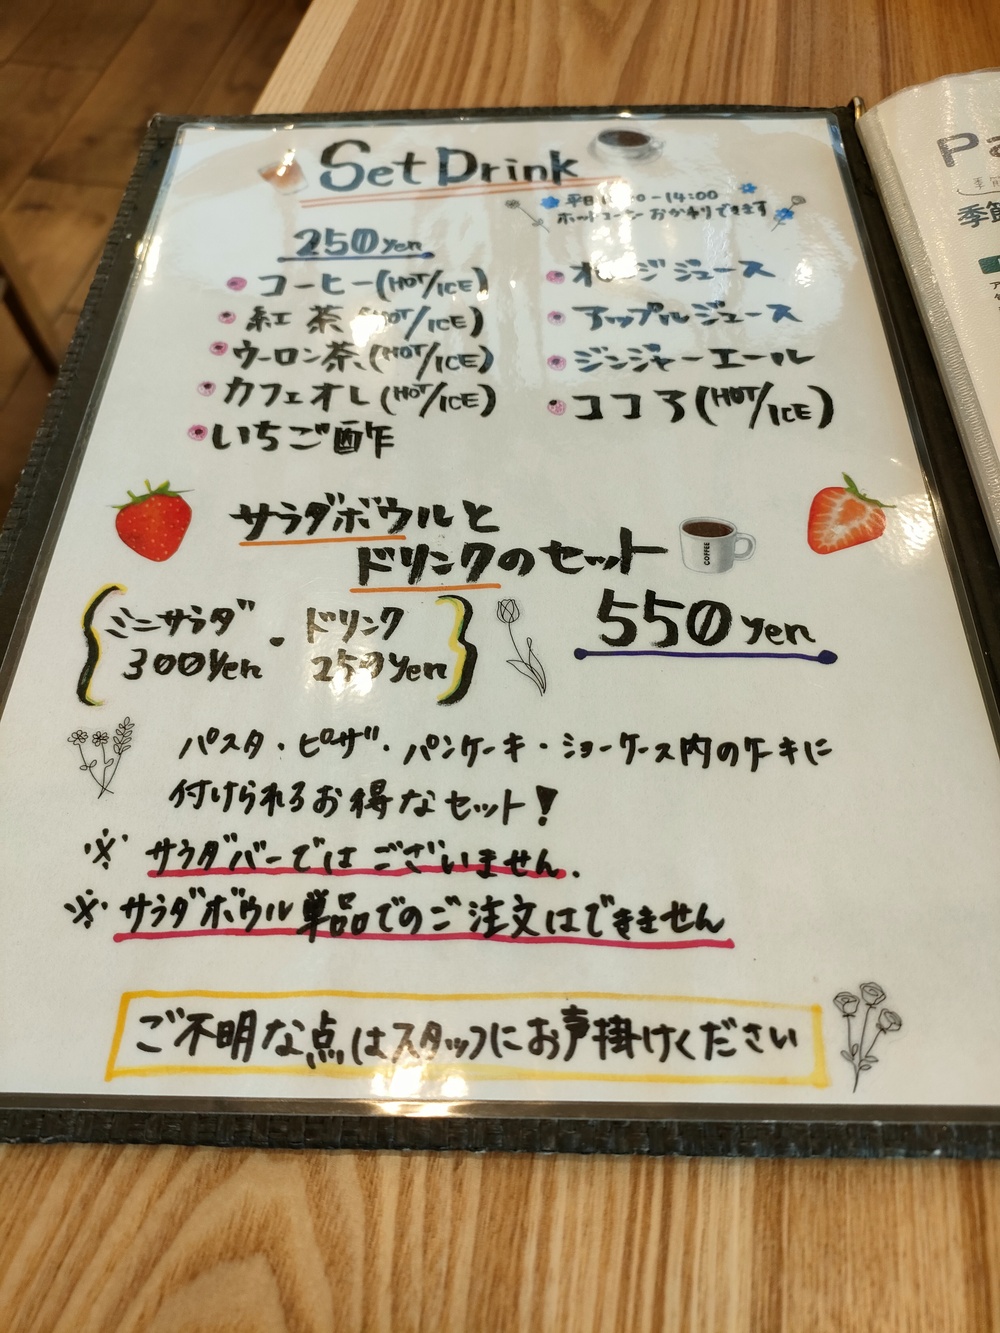 Set Drink
平日 0-14:00
ホットコーヒーおかわりできます
250yen
コーヒー(HOT/ICE)
紅茶(HOT/ICE)
ウーロン茶(HOT/ICE)
カフェオレ(HOT/ICE)
いちご酢
オレンジジュース
アップルジュース
ジンジャーエール
ココア(HOT/ICE)
サラダボウルと
ドリンクのセット
COFFEE
ミニサラダ・ドリンク
300yen 250yen
550yen
パスタ・ピザ・パンケーキ・ショーケース内のケーキに
付けられるお得なセット!
※サラダバーではございません.
※サラダボウル単品でのご注文はできません
ご不明な点はスタッフにお声掛けください
Pa
季節